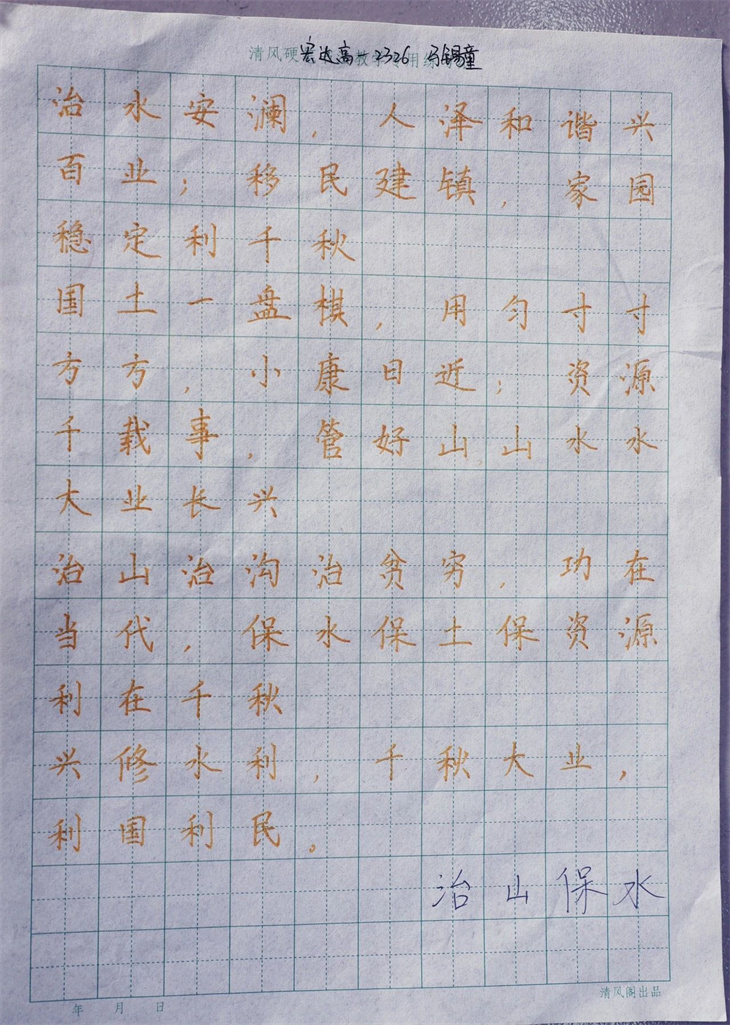 清风硬 宏达高一2326 马锡童
治水安澜，人泽和谐兴
百业；移民建镇，家园
稳定利千秋
国土一盘棋，用匀寸寸
方方，小康日近；资源
千载事，管好山山水水
大业长兴
治山治沟治贫穷，功在
当代，保水保土保资源
利在千秋
兴修水利，千秋大业，
利国利民。
治山保水
年 月 日
清风阁出品